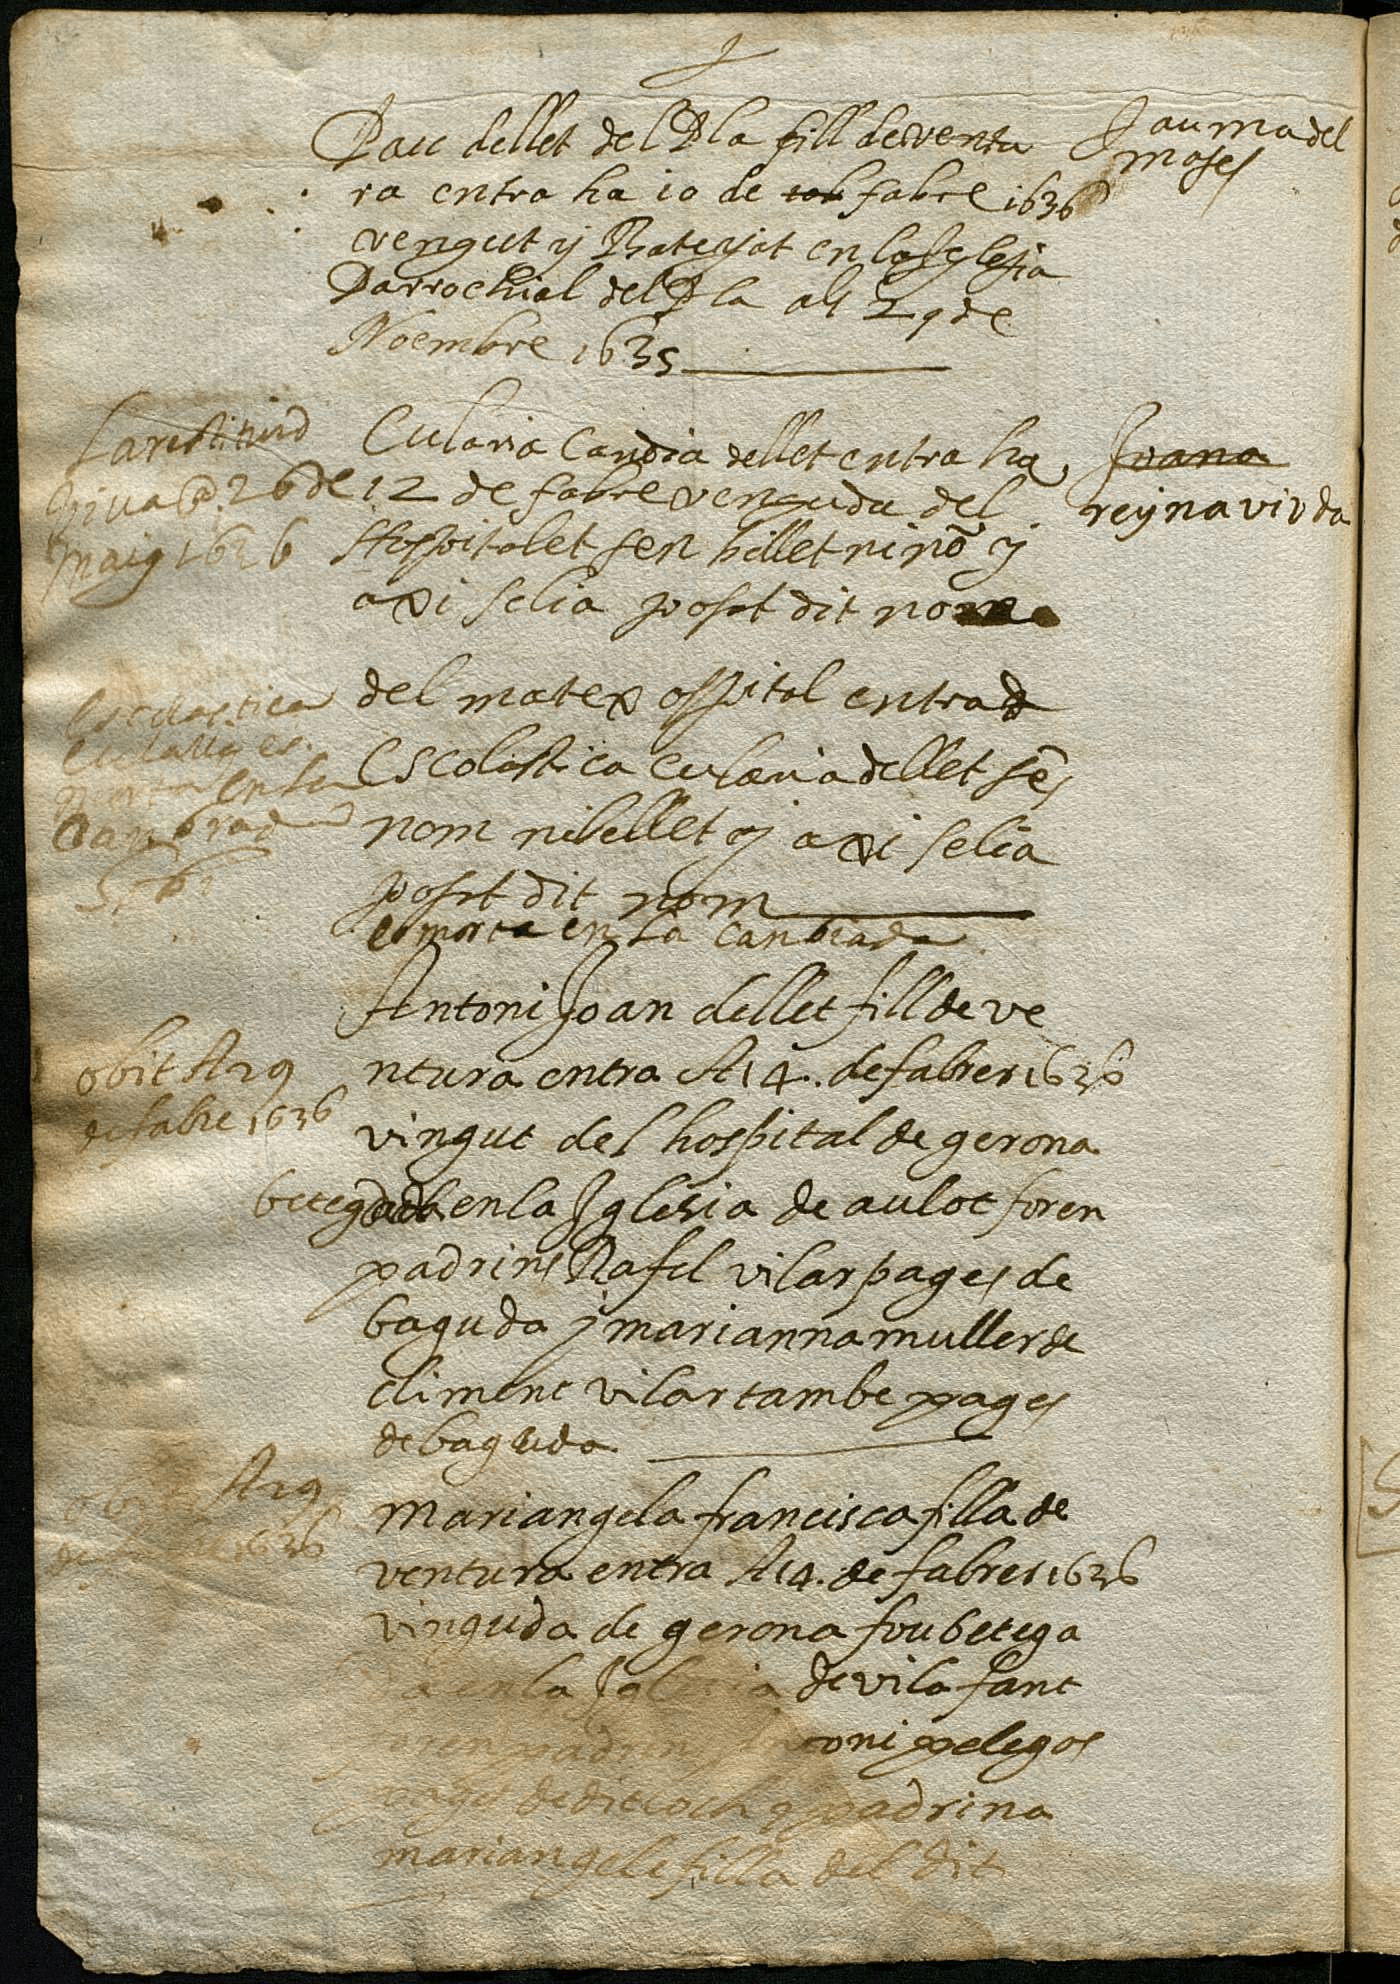 Pau dellet del Pla fill de venta
ra entra ha 10 de fabre 1636
vengut y Bateyat en la Iglesia
Parrochial del Pla als 29 de
Noembre 1635
Jauma del
mases
Eularia Candia dellet entra ha
12 de fabre venguda del
Hospitalet sen billet ni nõ y
axi selia posat dit nom
Joana
reyna viuda
La restituid
viua @ 26 de
maig 1636
del matex ospital entra
Escolastica Eularia dellet sẽs
nom ni bellet y axi selia
posat dit nom
es morta en la Candiada
Escolastica
Eulalia es
morta en la
Antoni Joan dellet fill de ve
ntura entra A 14. de fabrer 1636
vingut del hospital de gerona
betegada en la Iglesia de aulot foren
padrins Rafel vilar pages de
baguda y marianna muller de
climent vilar tambe pages
de baguda
obit A 29
de fabre 1636
mariangela francisca filla de
ventura entra A 14. de fabrer 1636
vinguda de gerona fou betega
da en la Iglesia de vila fant
foren padrins Antoni pelegos
pages de dit loch y padrina
mariangela filla del dit
obit A 29
de fabre 1636